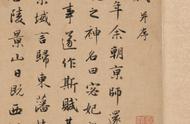 并序
年余朝京師還
之神名曰宓妃
事遂作斯賦
京域言歸東藩
陵景山日既西